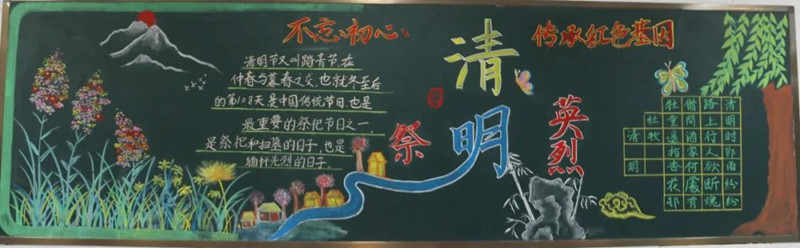 不忘初心
传承红色基因
清明节又叫踏青节,在
仲春与暮春之交,也就冬至后
的第108天是中国传统节日,也是
最重要的祭祀节日之一,
是祭祀和扫墓的日子,也是
缅怀先烈的日子.
清明
祭
英烈
清明时节雨纷纷
路上行人欲断魂
借问酒家何处有
牧童遥指杏花邨
牡
清
明